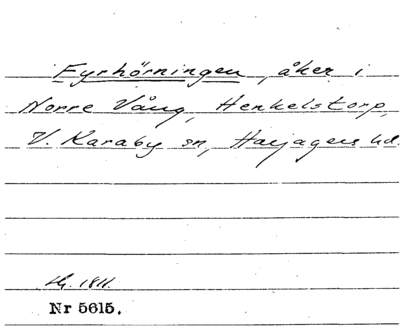 Fyrhörningen, åker i
Norre Vång, Henkelstorp,
V. Karaby sn, Harjagers hd.
1811.
Nr 5615.